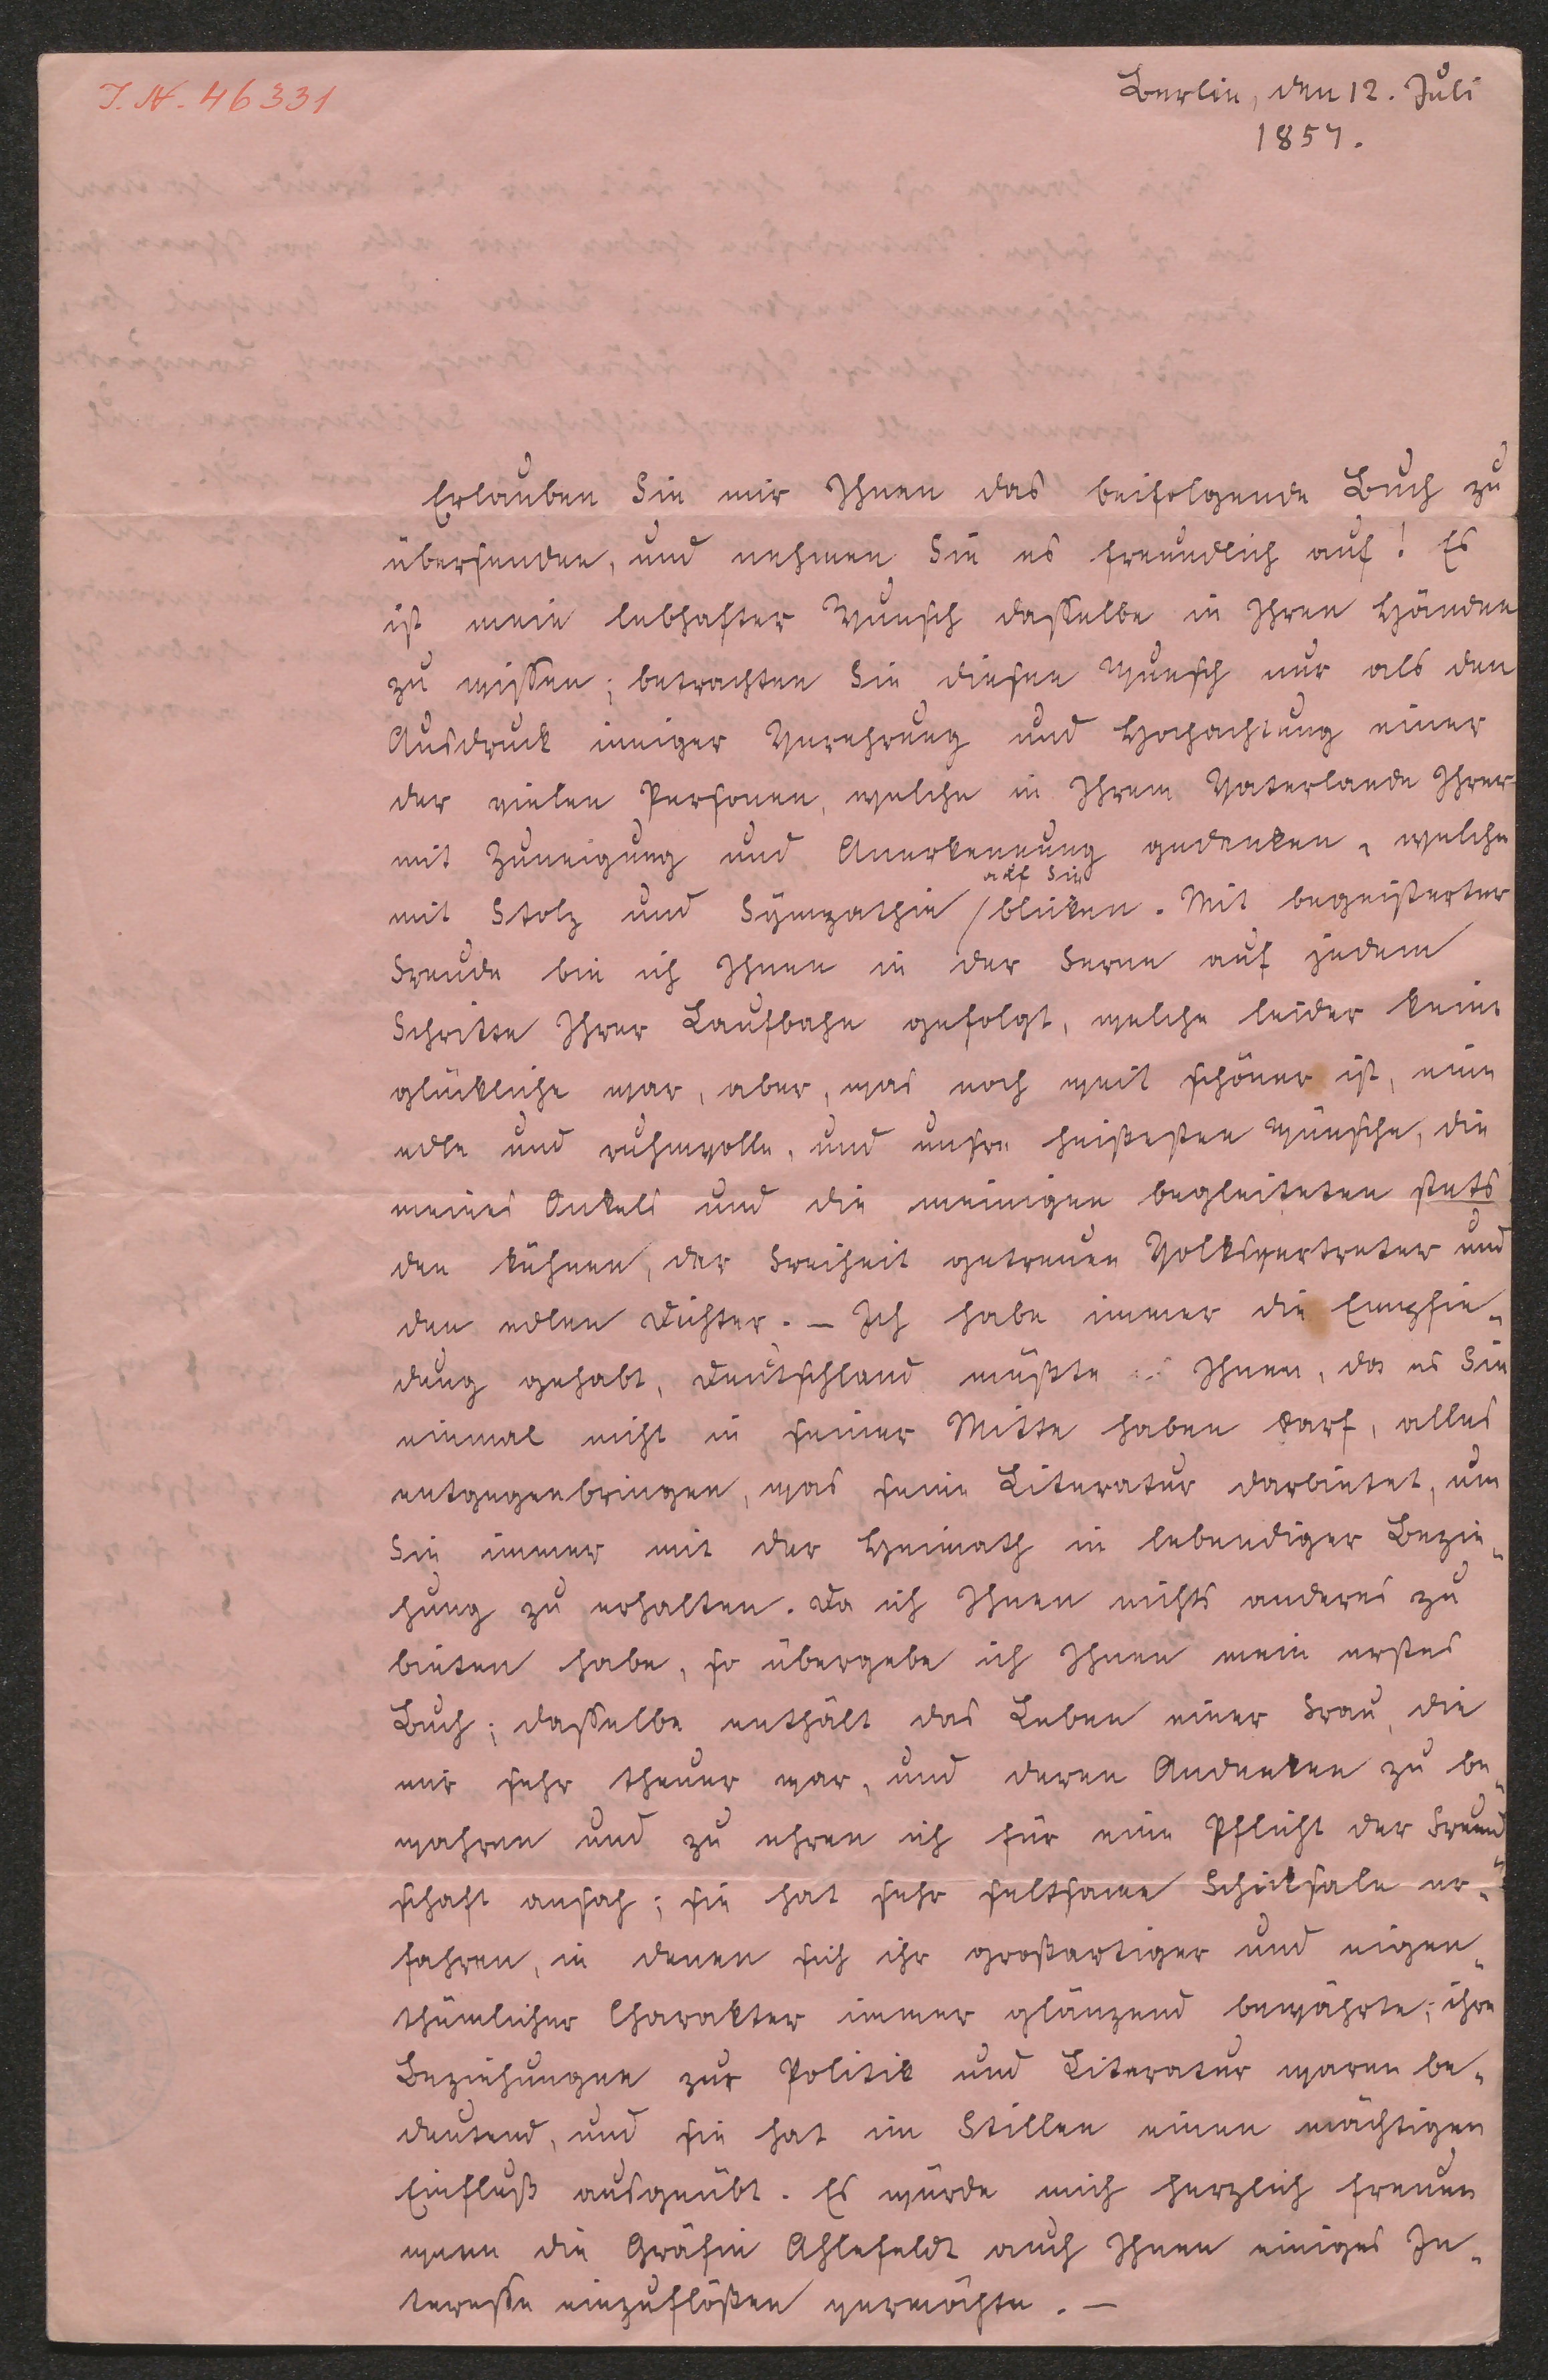 J. N. 46331
Berlin, den 12. Juli
1857.
Erlauben Sie mir Ihnen das beifolgende Buch zu
übersenden, und nehmen Sie es freundlich auf! Es
ist mein lebhafter Wunsch dasselbe in Ihren Händen
zu wissen; betrachten Sie diesen Wunsch nur als den
Ausdruck inniger Verehrung und Hochachtung einer
der vielen Personen, welche in Ihrem Vaterlande Ihrer
mit Zuneigung und Anerkennung gedenken, welche
auf Sie
mit Stolz und Sympathie / blicken. Mit begeisterter
Freude bin ich Ihnen in der Ferne auf jedem
Schritte Ihrer Laufbahn gefolgt, welche leider keine
glückliche war, aber, was noch weit schöner ist, eine
edle und ruhmvolle, und unsre heißesten Wünsche, die
meines Onkels und die meinigen begleiteten stets
den kühnen, der Freiheit getreuen Volksvertreter und
den edlen Dichter. – Ich habe immer die Empfin-
dung gehabt, Deutschland müßte Ihnen, da es Sie
einmal nicht in seiner Mitte haben darf, alles
entgegenbringen, was seine Literatur darbietet, um
Sie immer mit der Heimath in lebendiger Bezie-
hung zu erhalten. Da ich Ihnen nichts anderes zu
bieten habe, so übergebe ich Ihnen mein erstes
Buch; dasselbe enthält das Leben einer Frau, die
mir sehr theuer war, und deren Andenken zu be-
wahren und zu ehren ich für eine Pflicht der Freund-
schaft ansah; sie hat sehr seltsame Schicksale er-
fahren, in denen sich ihr großartiger und eigen-
thümlicher Charakter immer glänzend bewährte; ihre
Beziehungen zur Politik und Literatur waren be-
deutend, und sie hat im Stillen einen mächtigen
Einfluß ausgeübt. Es würde mich herzlich freuen
wenn die Gräfin Ahlefeldt auch Ihnen einiges In-
teresse einzuflößen vermöchte. –